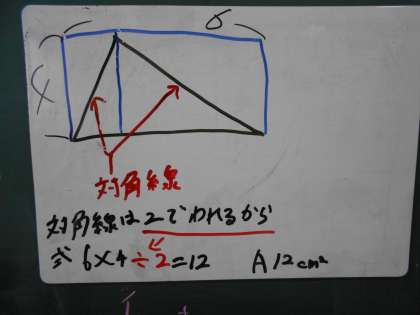 6
4
対角線
対角線は2でわれるから
式 6×4÷2=12 A 12cm²